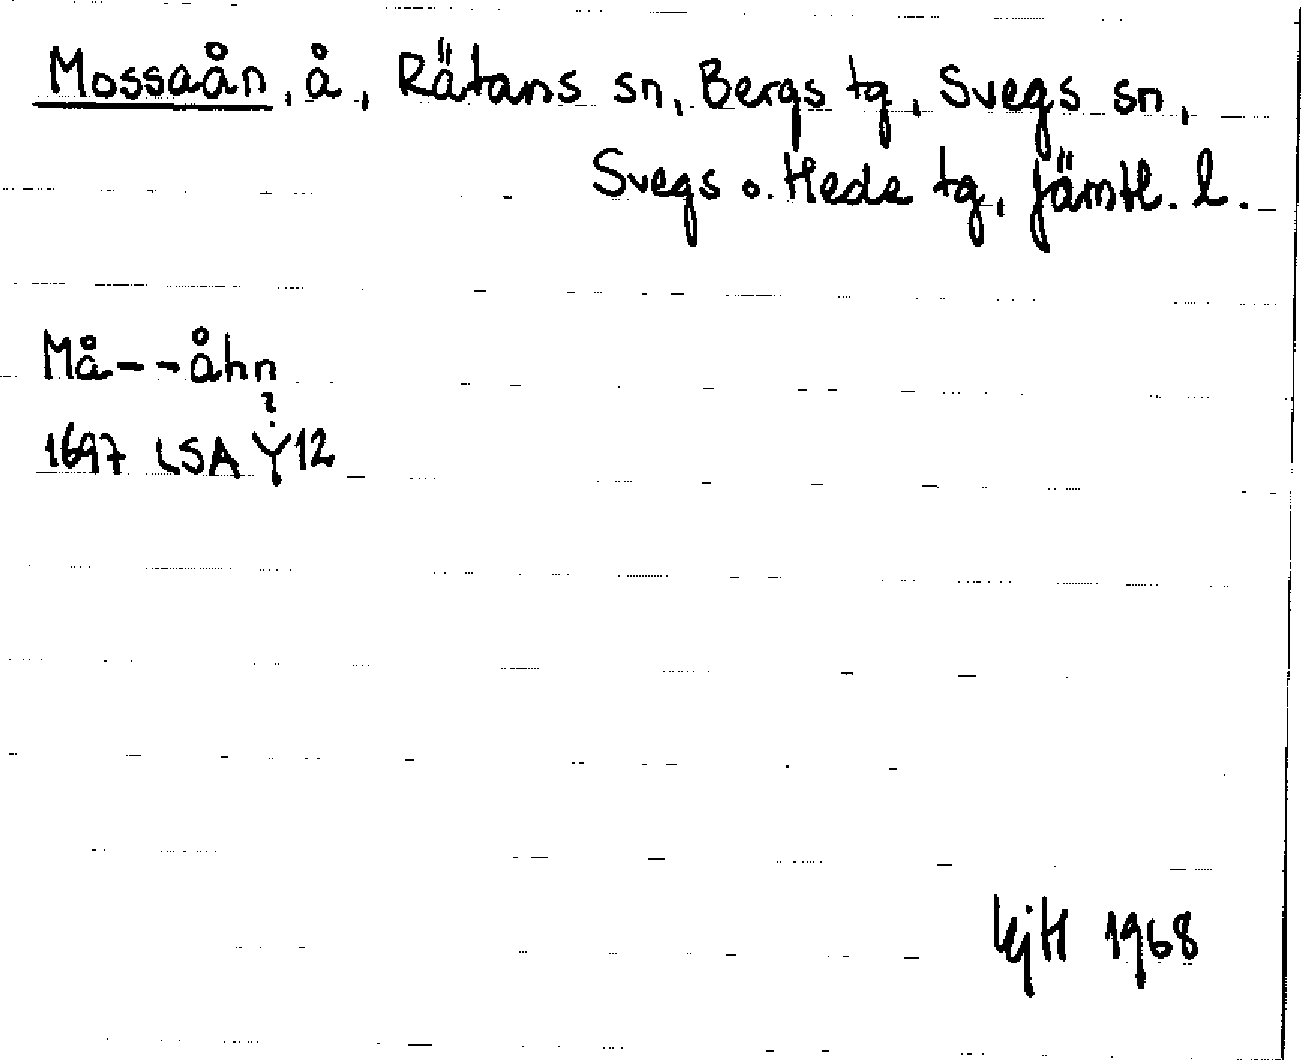 Mossaån, å, Rätans sn, Bergs tg, Svegs sn,
Svegs o. Hede tg, Jämtl. l.
Må--åhn
?
1697 LSA Y12
KjH 1968